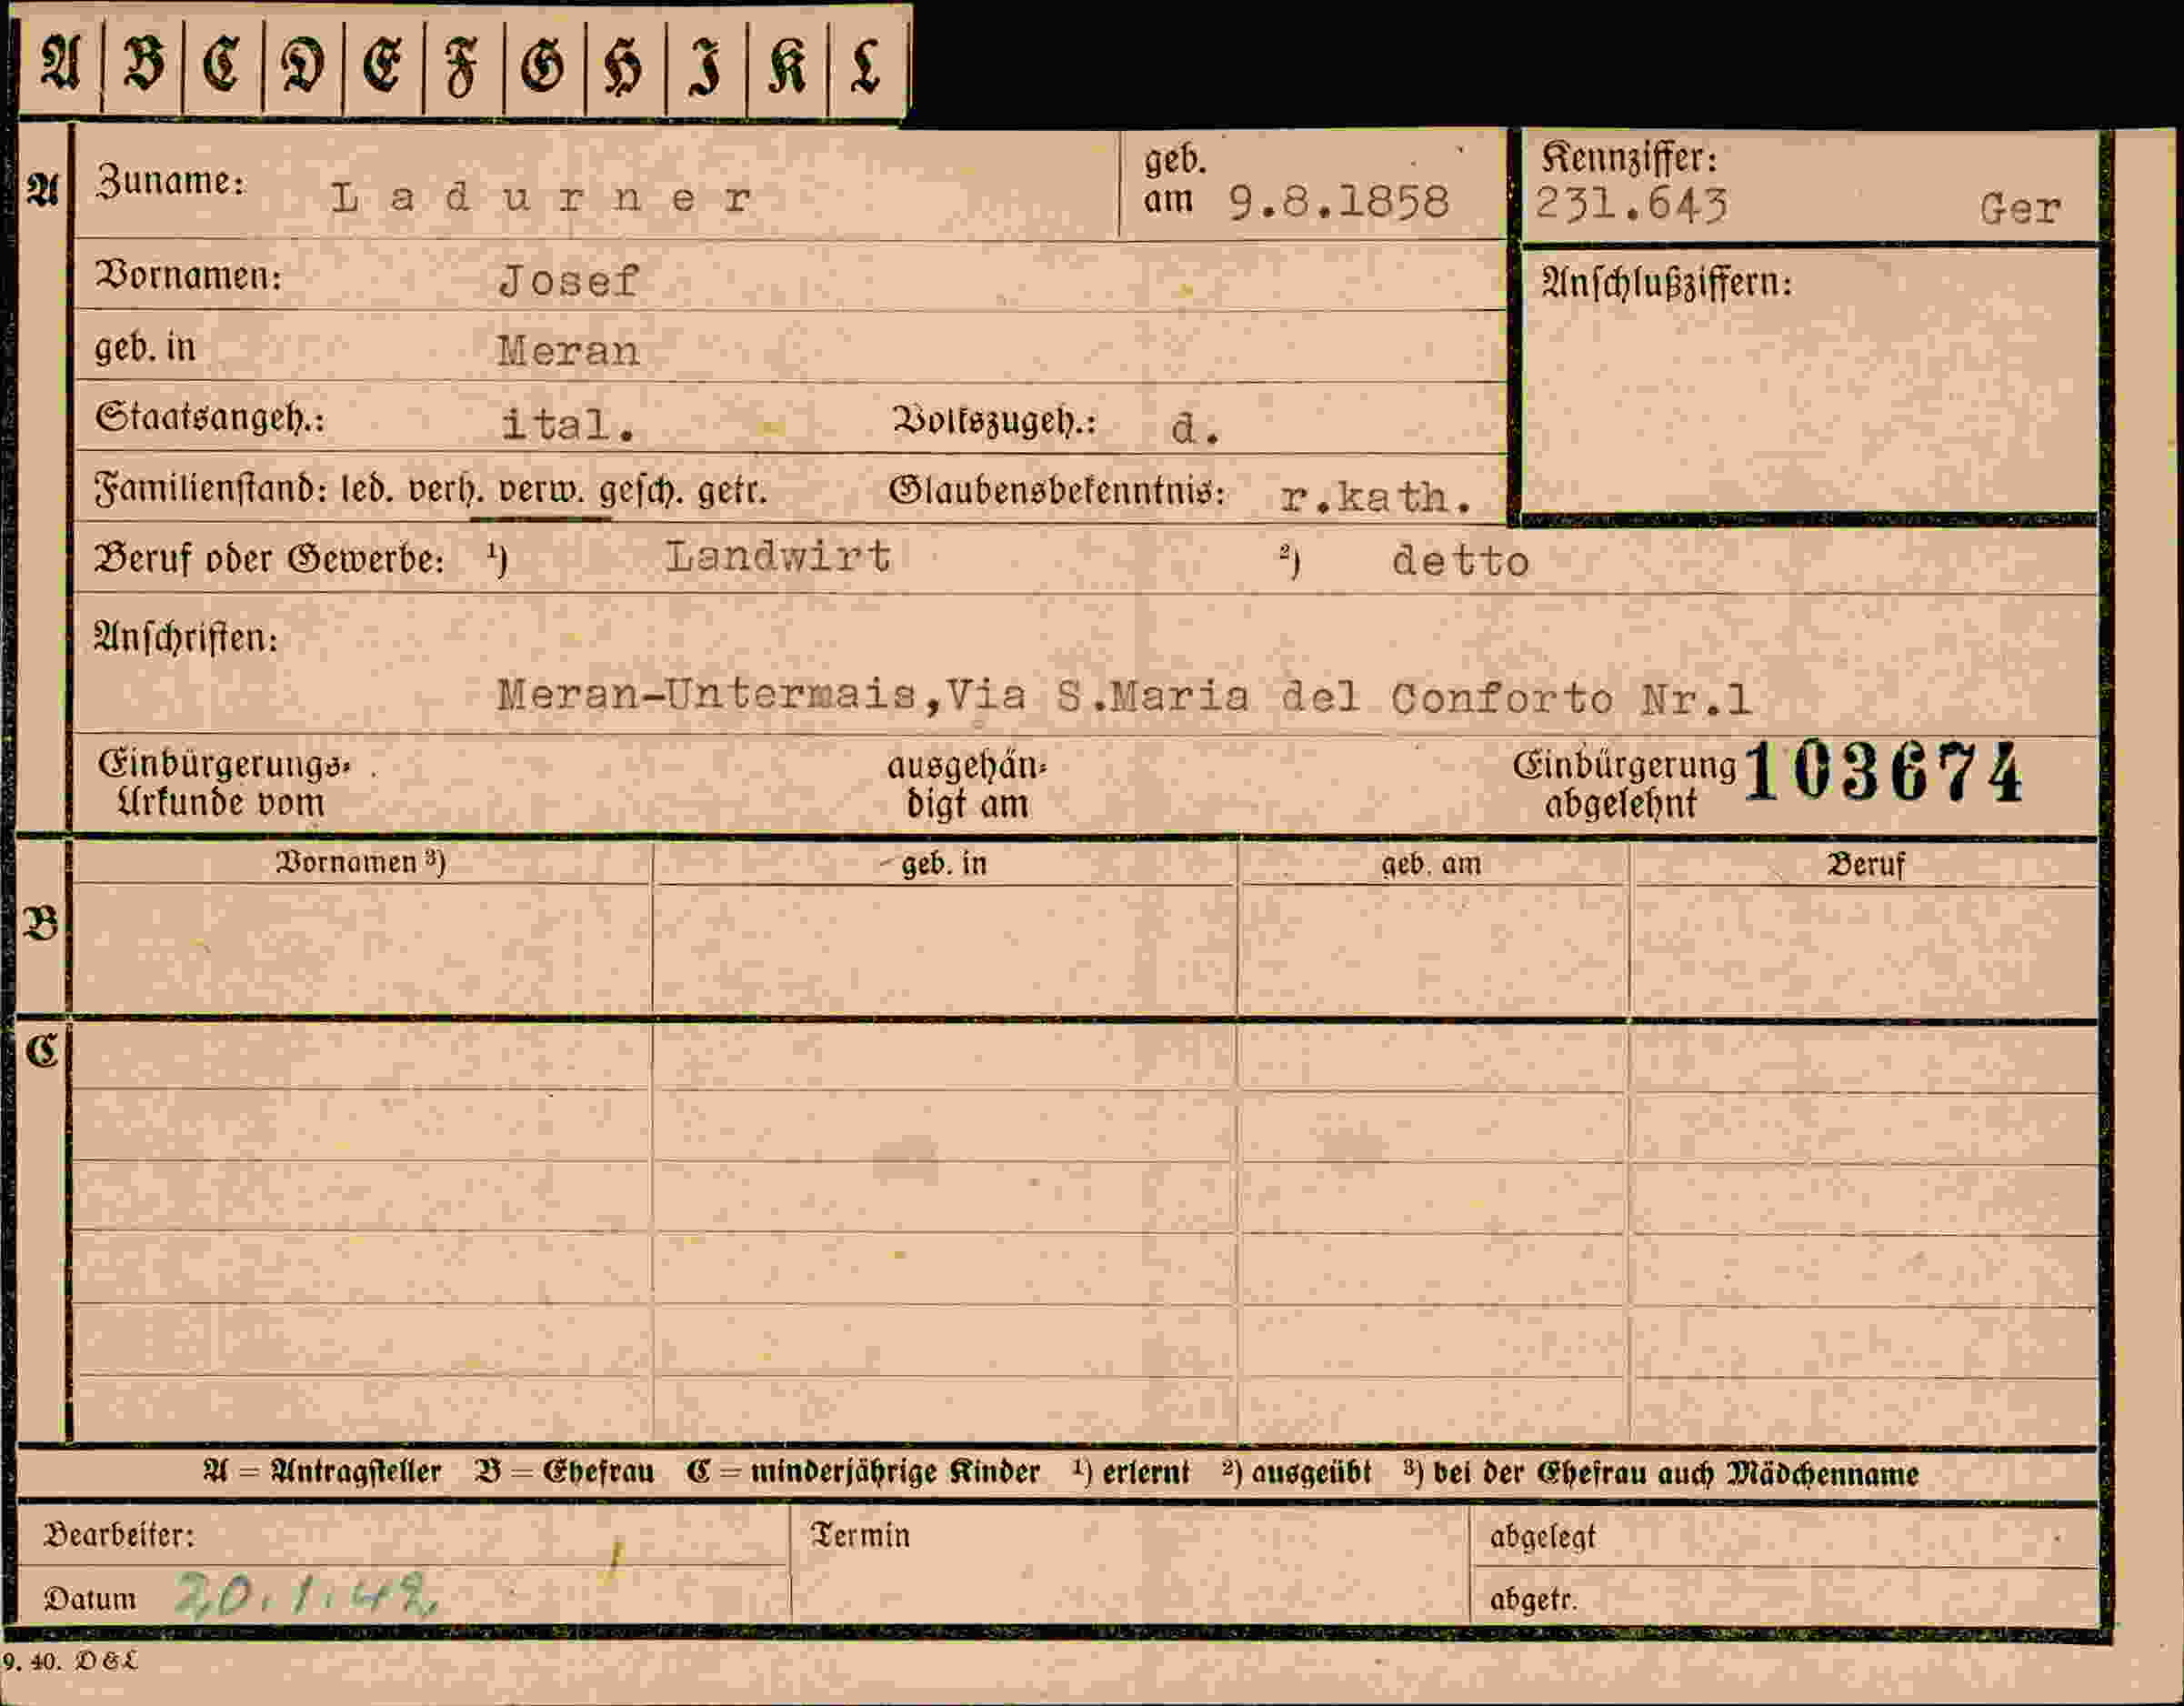 A B C D E F G H I K L
A Zuname: Ladurner geb. am 9.8.1858 Kennziffer: 231.643 Ger
Vornamen: Josef Anschlußziffern:
geb. in Meran
Staatsangeh.: ital. Volkszugeh.: d.
Familienstand: led. verh. verw. gesch. getr. Glaubensbekenntnis: r.kath.
Beruf oder Gewerbe: ¹) Landwirt ²) detto
Anschriften:
Meran-Untermais,Via S.Maria del Conforto Nr.1
Einbürgerungs- ausgehän- Einbürgerung 103674
Urkunde vom digt am abgelehnt
Vornamen ³) geb. in geb. am Beruf
B
C
A = Antragsteller B = Ehefrau C = minderjährige Kinder ¹) erlernt ²) ausgeübt ³) bei der Ehefrau auch Mädchenname
Bearbeiter: Termin abgelegt
Datum 20.1.42. abgetr.
9. 40. D & L